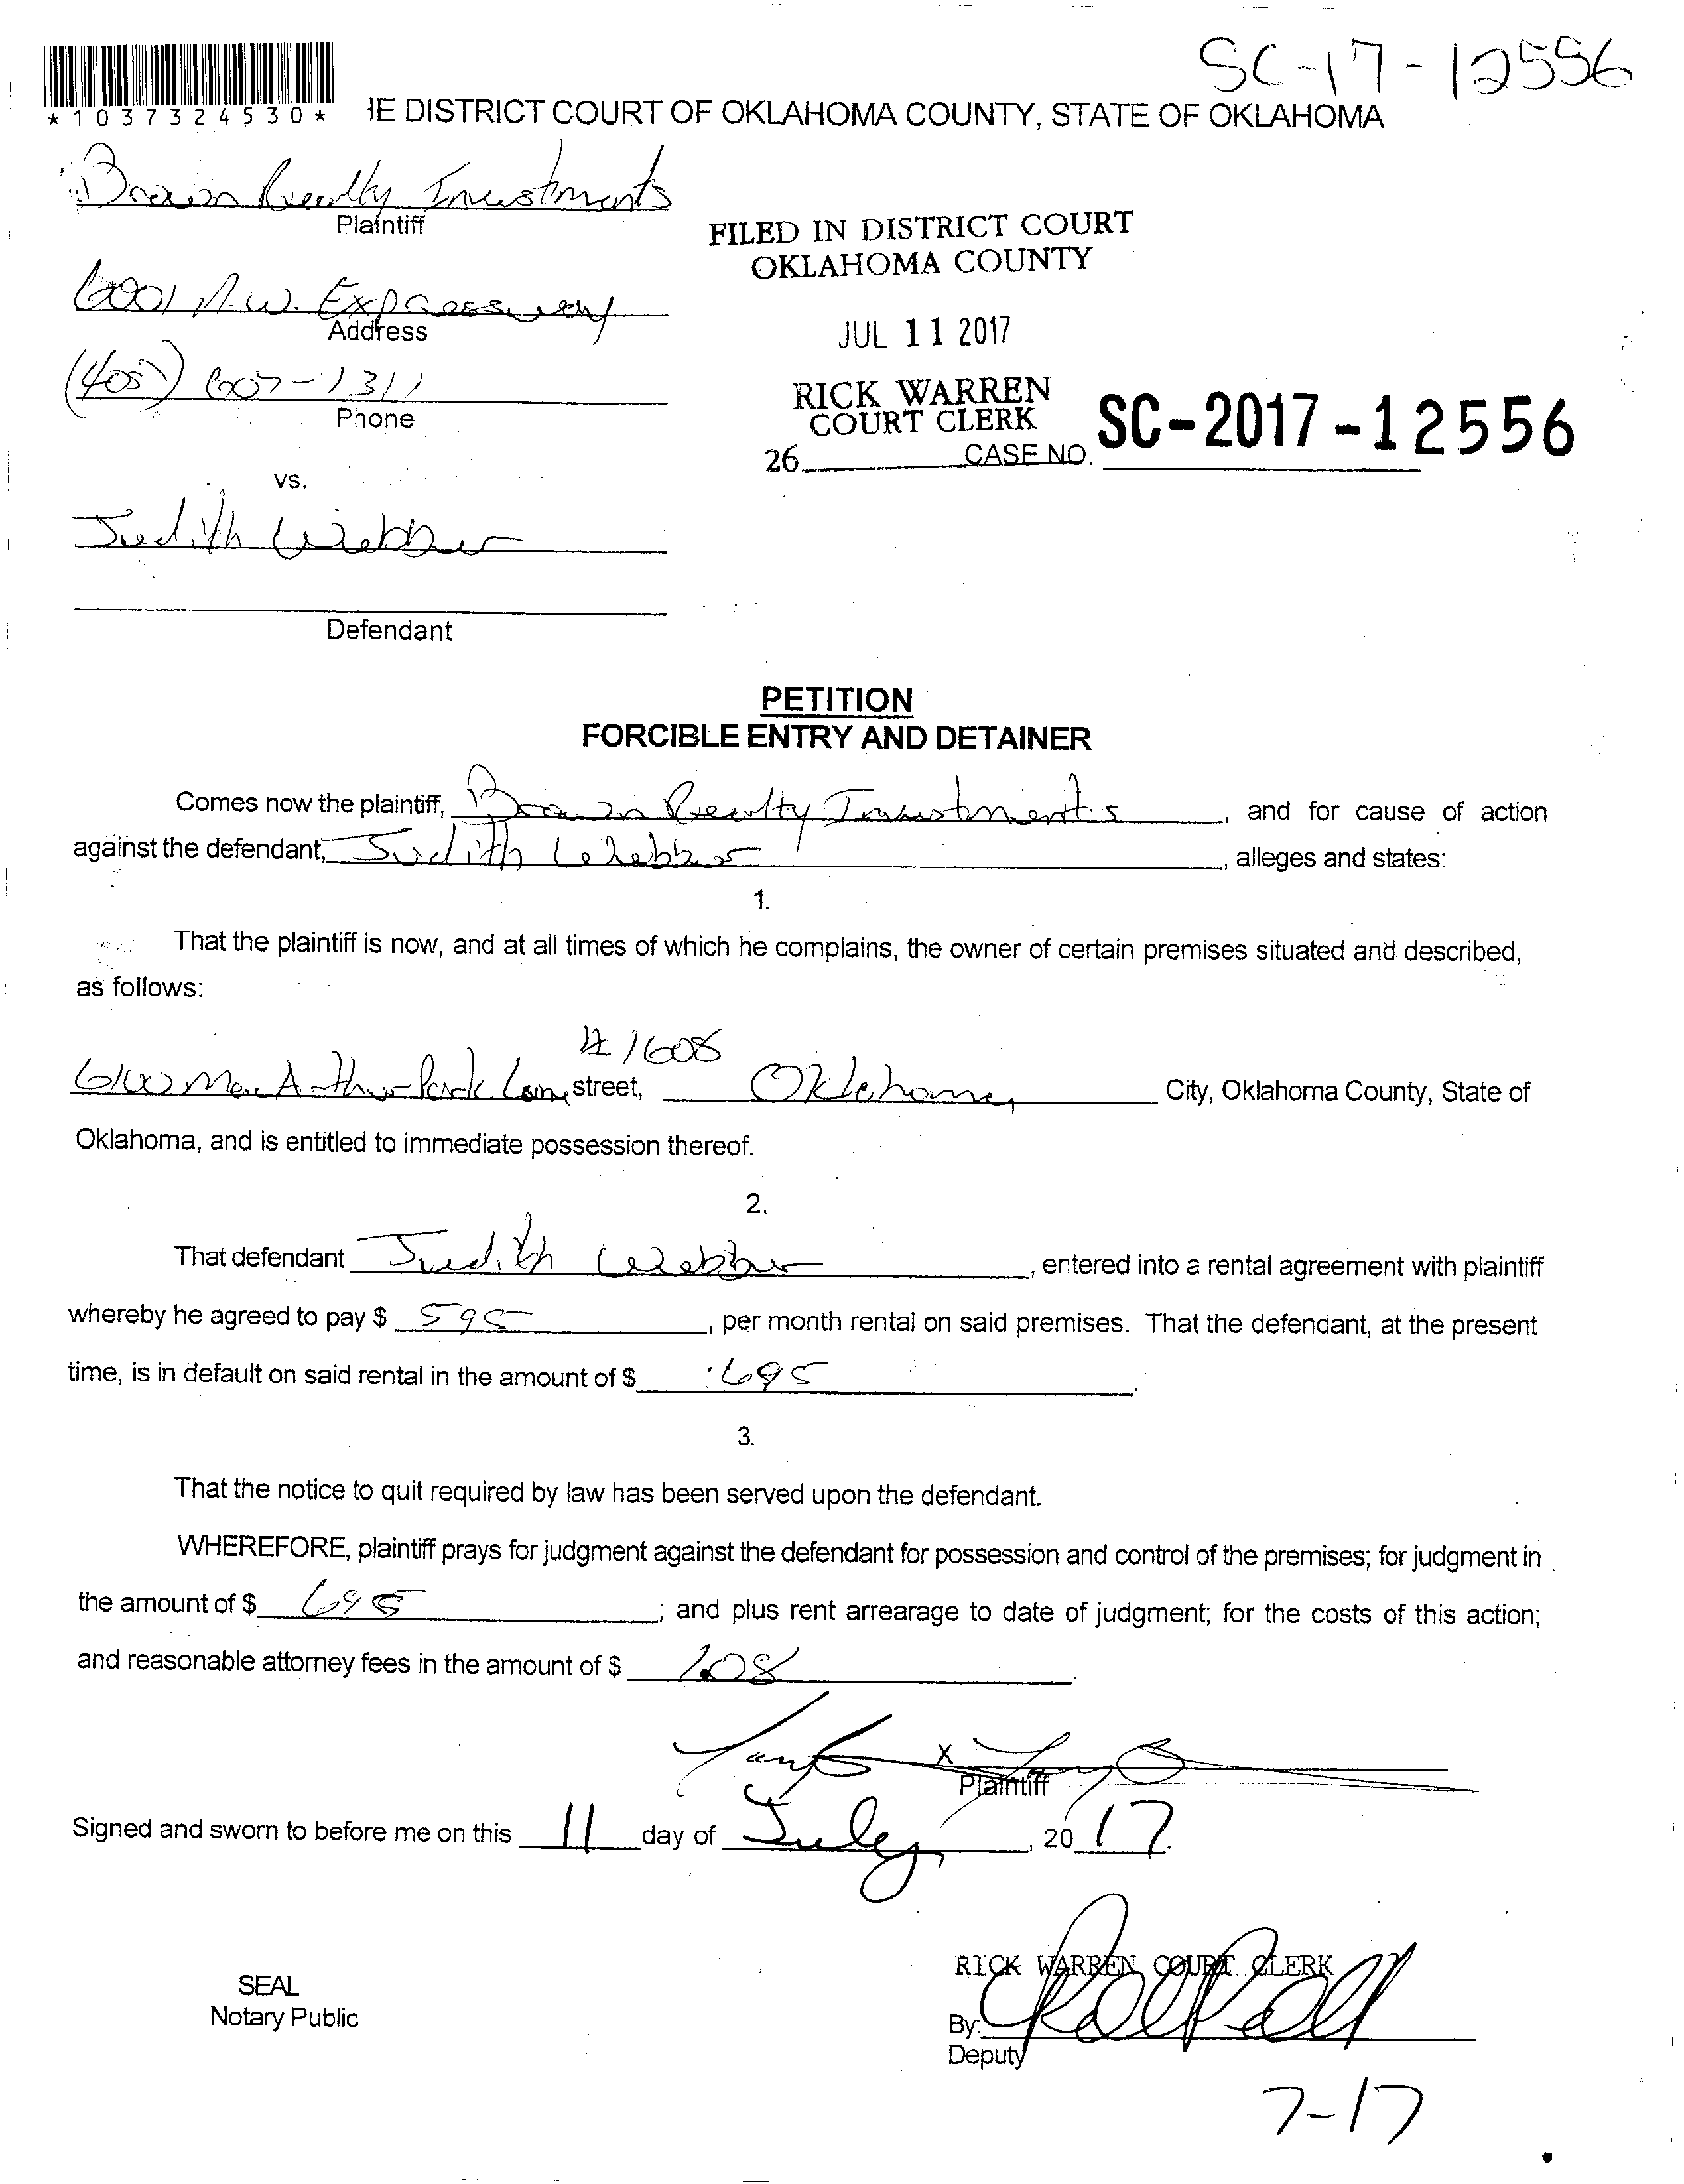 SC-17-12556
*1037324530*
IE DISTRICT COURT OF OKLAHOMA COUNTY, STATE OF OKLAHOMA
Brown Realty Investments
Plaintiff
FILED IN DISTRICT COURT
OKLAHOMA COUNTY
6001 N.W. Expressway
Address
JUL 11 2017
(405) 607-1311
Phone
RICK WARREN
COURT CLERK
26 CASE NO. SC-2017-12556
vs.
Judith Webber
Defendant
PETITION
FORCIBLE ENTRY AND DETAINER
Comes now the plaintiff, Brown Realty Investments, and for cause of action
against the defendant, Judith Webber, alleges and states:
1.
That the plaintiff is now, and at all times of which he complains, the owner of certain premises situated and described,
as follows:
# 1608
6100 MacArthur Park Lane street, Oklahoma City, Oklahoma County, State of
Oklahoma, and is entitled to immediate possession thereof.
2.
That defendant Judith Webber, entered into a rental agreement with plaintiff
whereby he agreed to pay $ 595, per month rental on said premises. That the defendant, at the present
time, is in default on said rental in the amount of $ 695.
3.
That the notice to quit required by law has been served upon the defendant.
WHEREFORE, plaintiff prays for judgment against the defendant for possession and control of the premises; for judgment in
the amount of $ 695; and plus rent arrearage to date of judgment; for the costs of this action;
and reasonable attorney fees in the amount of $ 108.
X
Plaintiff
Signed and sworn to before me on this 11 day of July, 20 17.
RICK WARREN COURT CLERK
SEAL
Notary Public
By:
Deputy
7-17